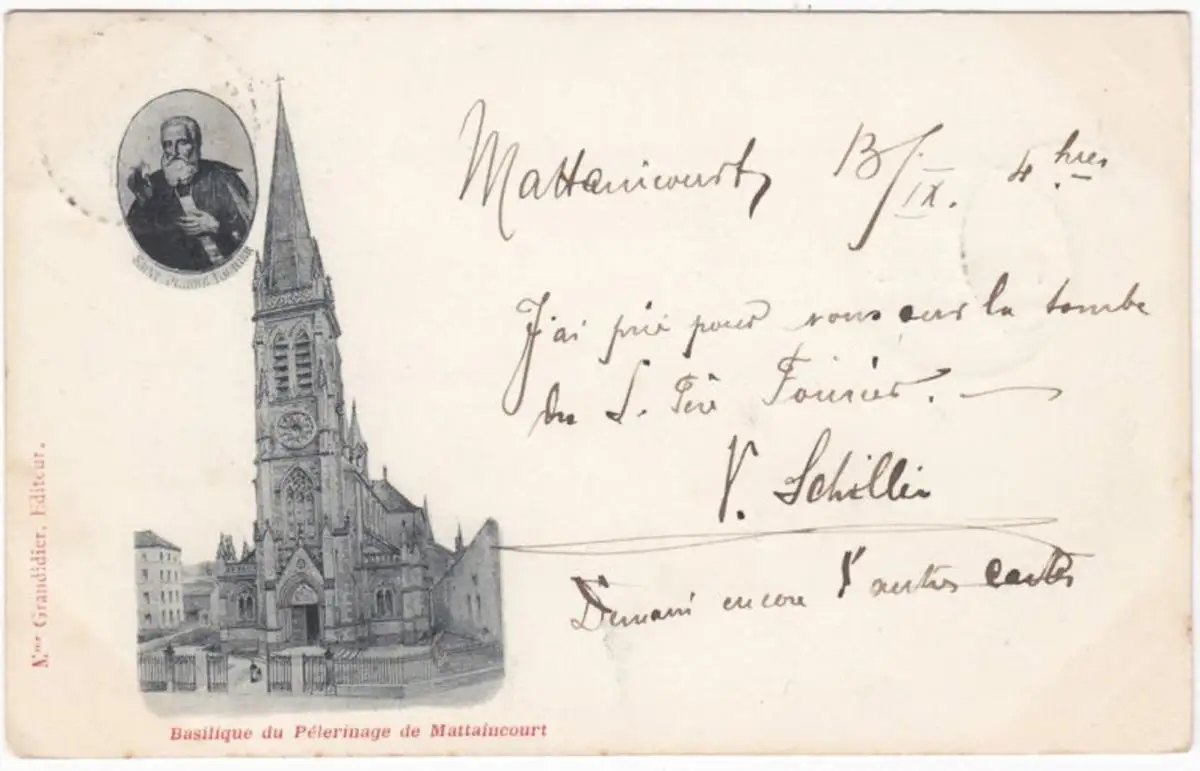 Mattaincourt, 13/IX. 4 hres
J'ai prié pour vous sur la tombe
du S. Père Fourier.
V. Schiller
Demain encore d'autres cartes
SAINT PIERRE FOURIER
Mme Grandidier, Editeur.
Basilique du Pélerinage de Mattaincourt